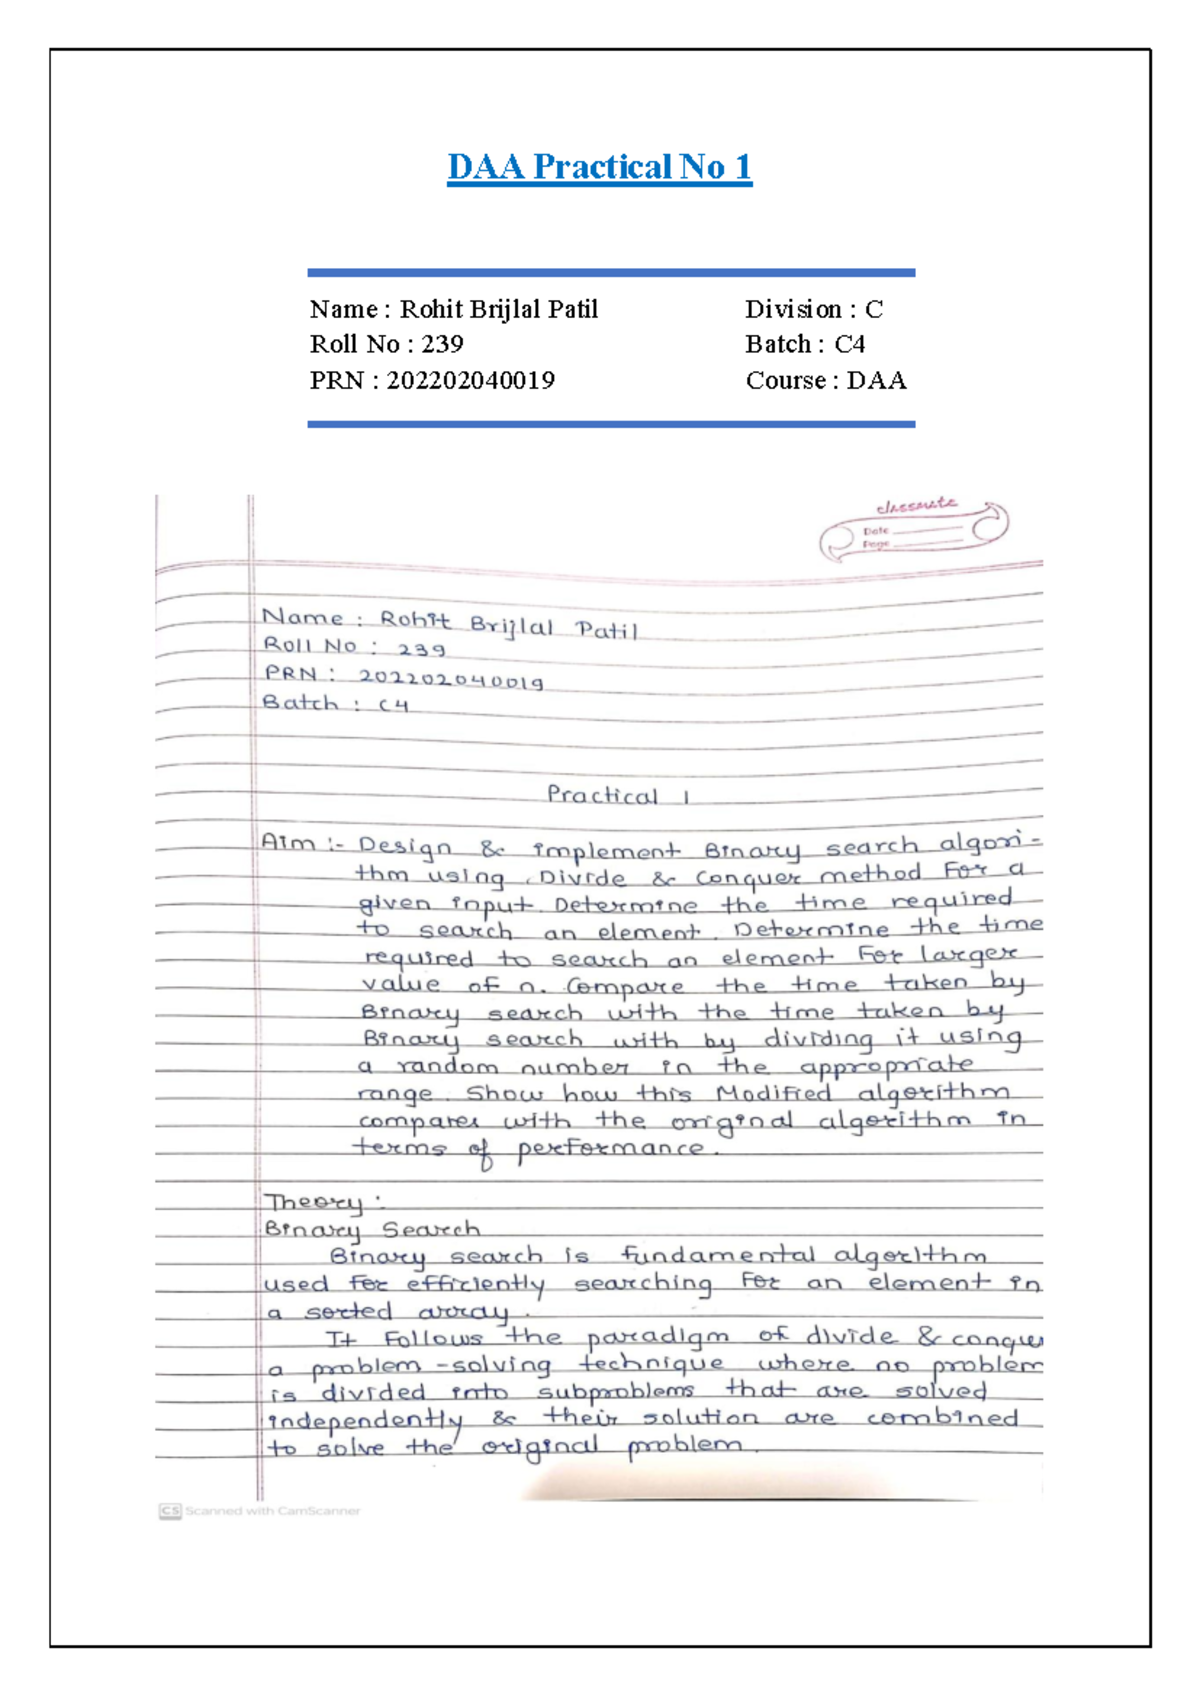 DAA Practical No 1
Name : Rohit Brijlal Patil Division : C
Roll No : 239 Batch : C4
PRN : 202202040019 Course : DAA
classmate
Date
Page
Name : Rohit Brijlal Patil
Roll No : 239
PRN : 202202040019
Batch : C4
Practical 1
Aim :- Design & implement Binary search algori-
thm using Divide & Conquer method For a
given input. Determine the time required
to search an element. Determine the time
required to search an element For larger
value of n. Compare the time taken by
Binary search with the time taken by
Binary search with by dividing it using
a random number in the appropriate
range. Show how this Modified algorithm
compares with the original algorithm in
terms of performance.
Theory :
Binary Search
Binary search is fundamental algorithm
used for efficiently searching For an element in
a sorted array.
It Follows the paradigm of divide & conquer
a problem-solving technique where no problem
is divided into subproblems that are solved
independently & their solution are combined
to solve the original problem.
CS Scanned with CamScanner